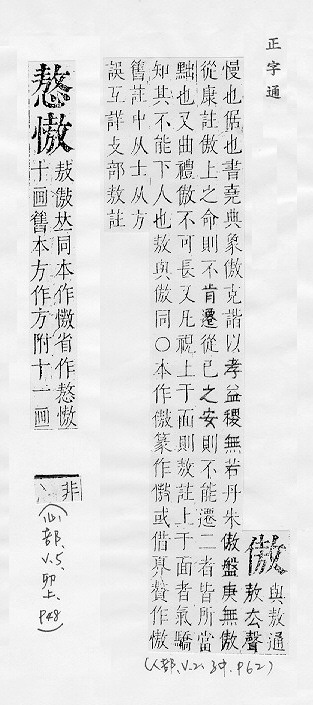 正字通
傲
與敖通
敖厺聲
慢也倨也書堯典象傲克諧以孝益稷無若丹朱傲盤庚無傲
從康註傲上之命則不肯遷從己之安則不能遷二者皆所當
黜也又曲禮傲不可長又凡視上于面則敖註上于面者氣驕
知其不能下人也敖與傲同○本作傲篆作或借奡贅作慠
舊註中从士从方
誤互詳攴部敖註
(人部、V.2、子中、P62)
慠
敖傲𠀤同本作省作慠
十画舊本方作方附十一画
非
(心部、V.5、卯上、P48)